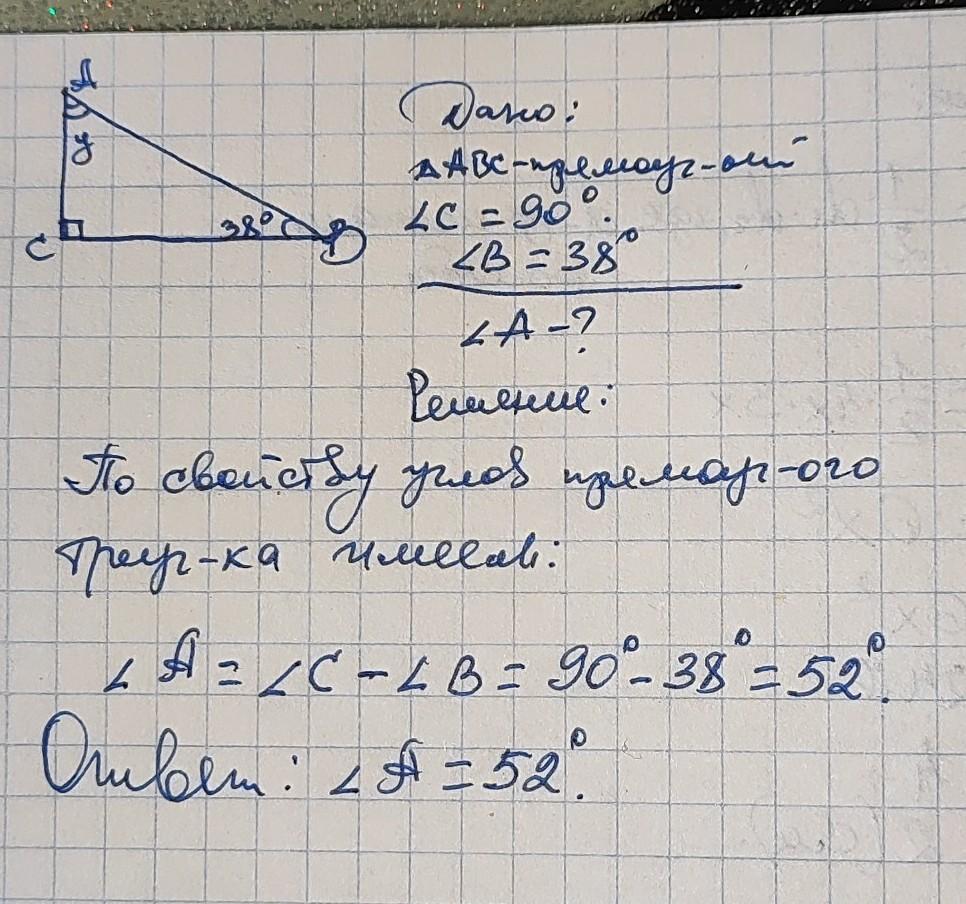 A
y
C
38°
B
Дано:
△ABC-прямоуг-ый
∠C = 90°.
∠B = 38°
∠A - ?
Решение:
По свойству углов прямоуг-ого
треуг-ка имеем:
∠A = ∠C - ∠B = 90° - 38° = 52°.
Ответ: ∠A = 52°.